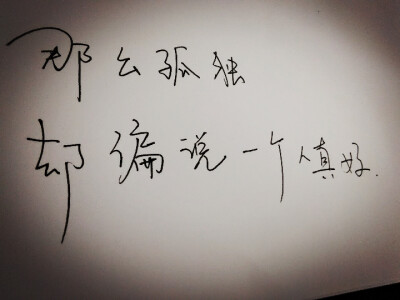 那么孤独
却偏说一个人真好.